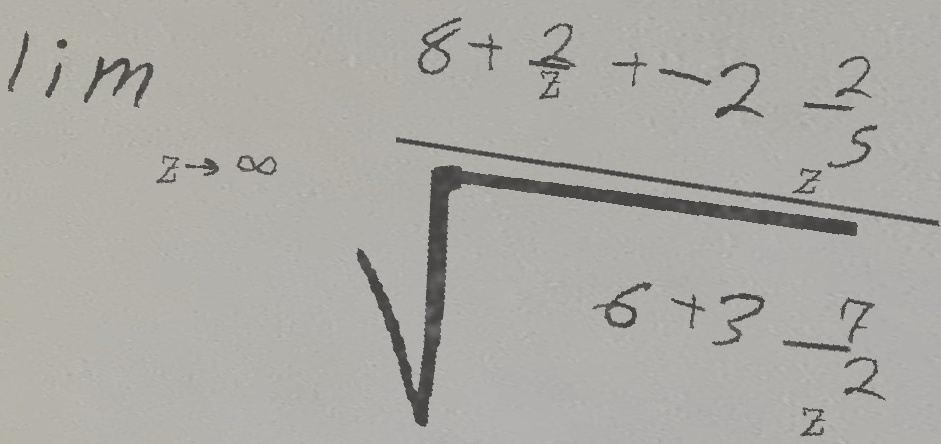 lim z→∞ (8 + 2/z + -2 2/z^5) / √(6 + 3 7/z^2)